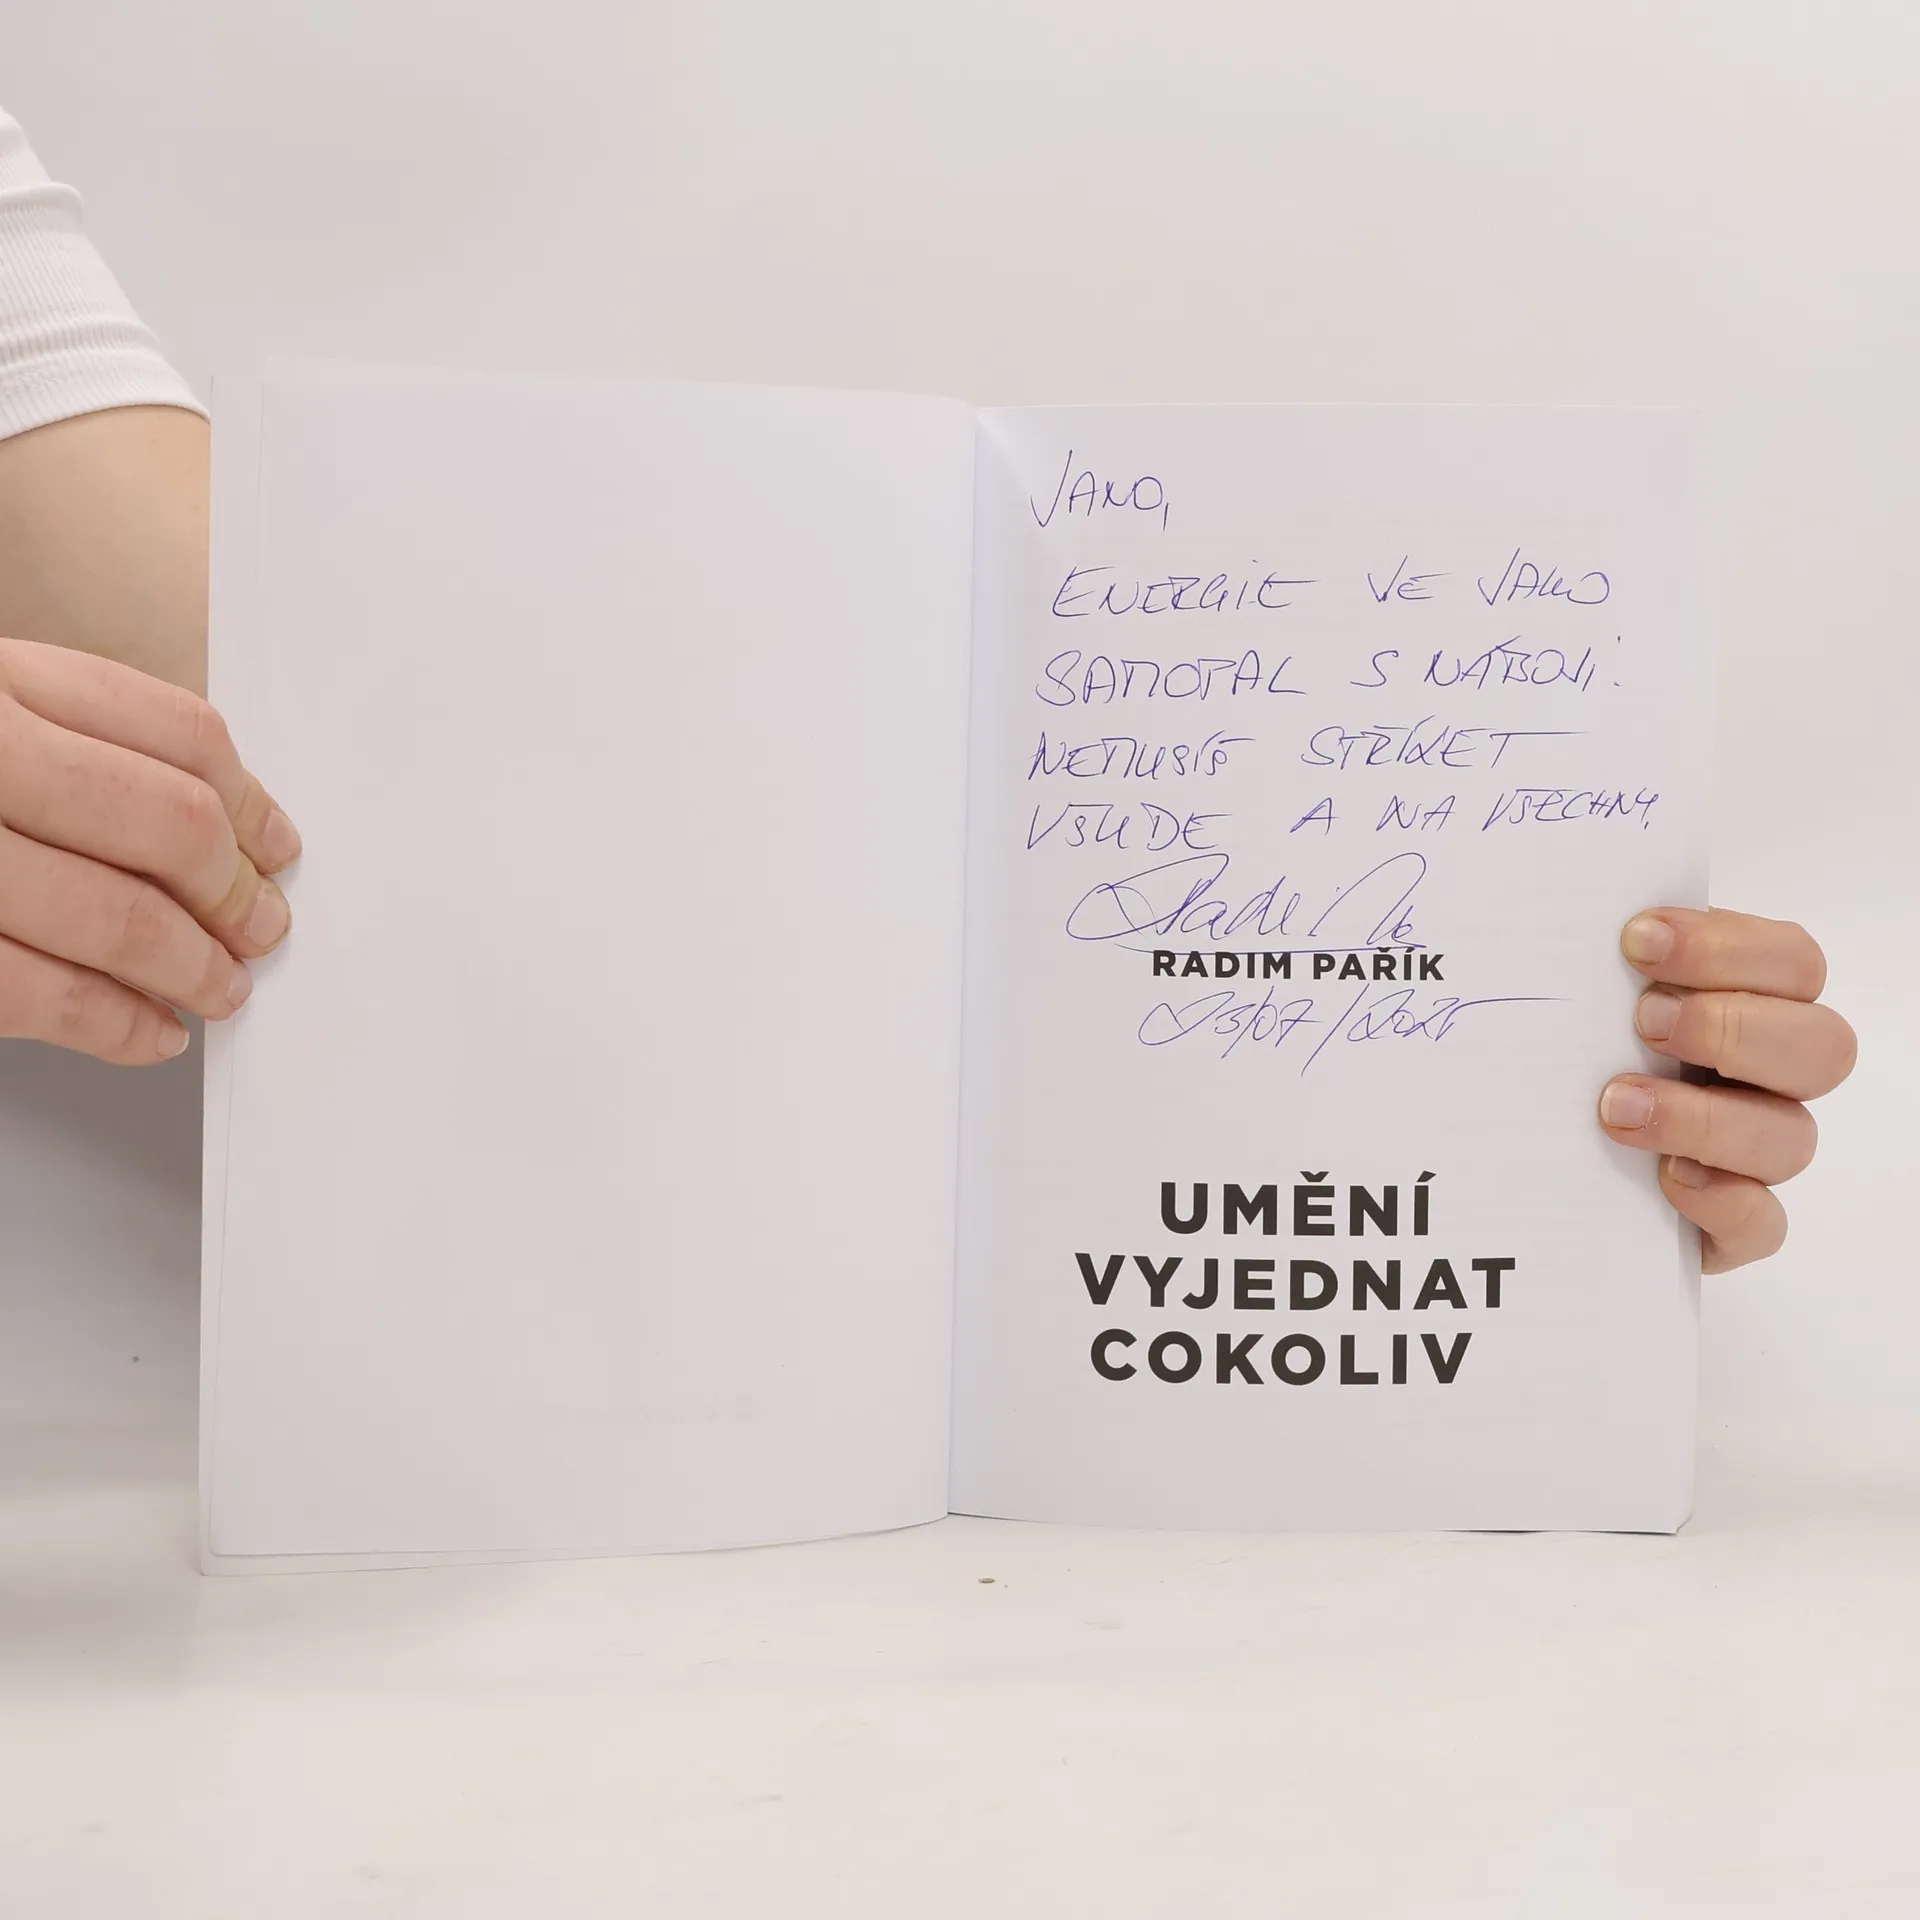 JANO,
ENERGIE JE JAKO
SAMOPAL S NÁBOJI:
NEMUSÍŠ STŘÍLET
VŠUDE A NA VŠECHNY.
RADIM PAŘÍK
23/07/2025
UMĚNÍ
VYJEDNAT
COKOLIV